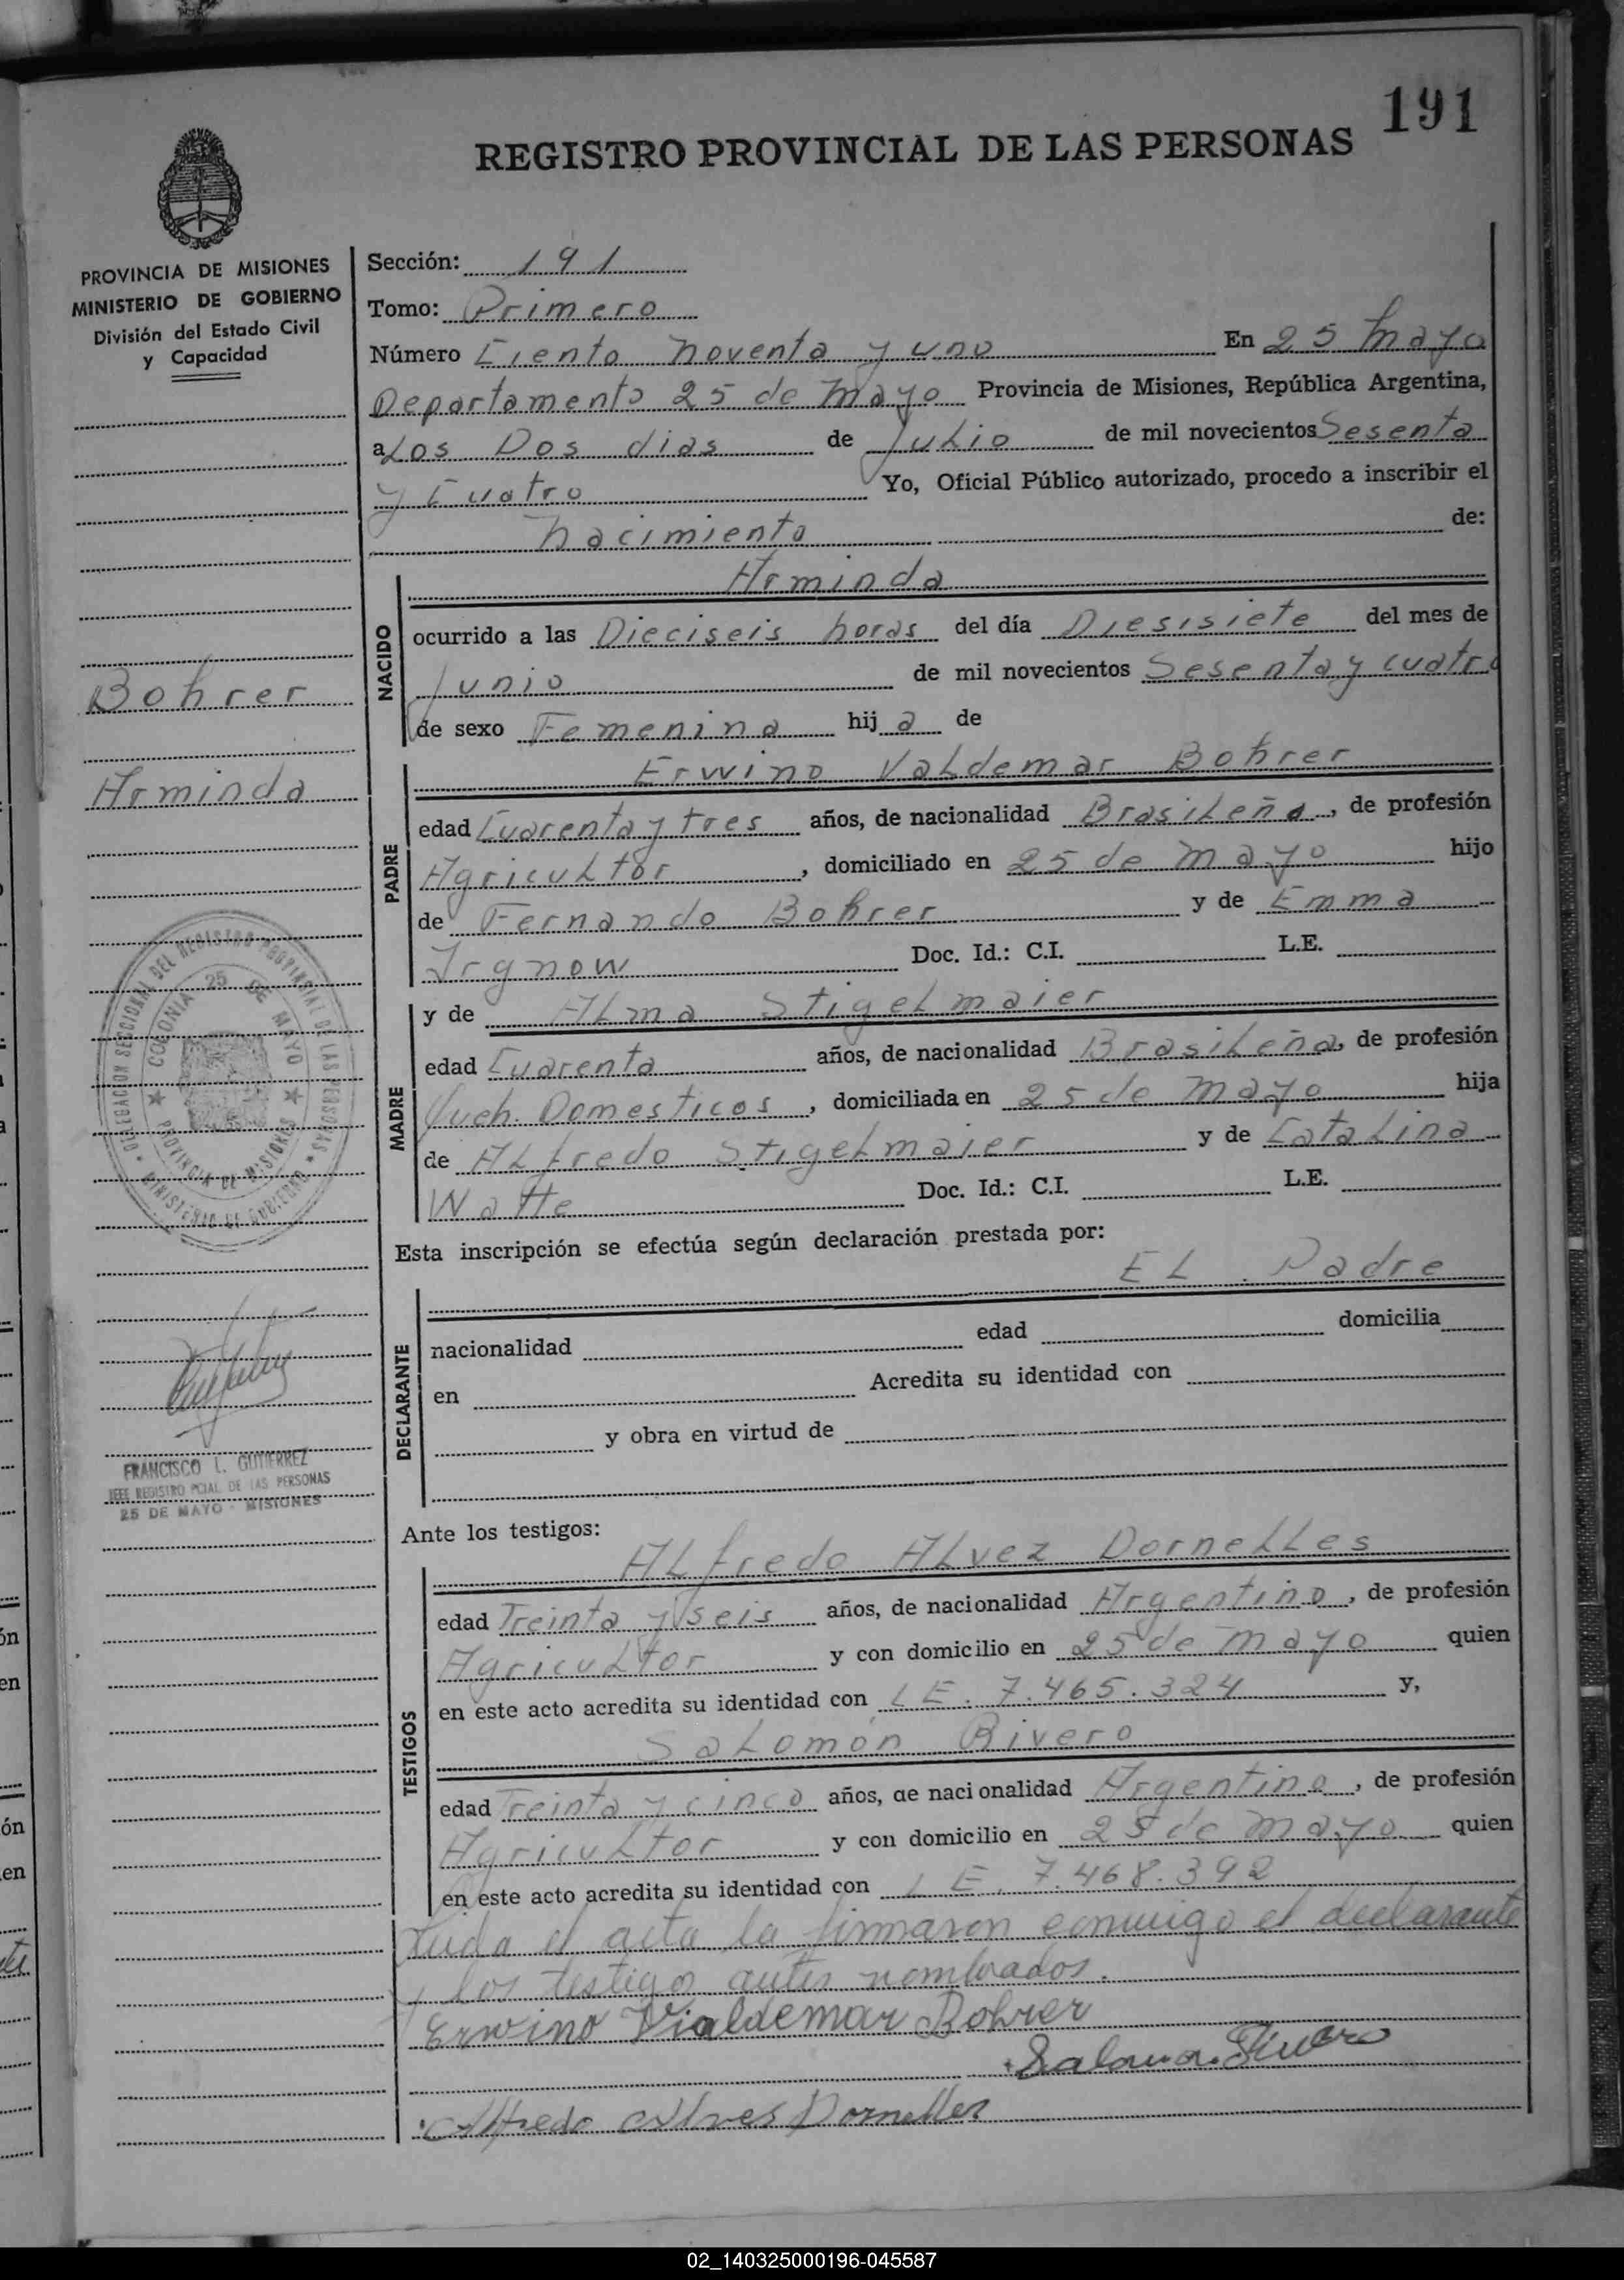 191
REGISTRO PROVINCIAL DE LAS PERSONAS
PROVINCIA DE MISIONES
MINISTERIO DE GOBIERNO
División del Estado Civil
y Capacidad
Bohrer
Arminda
DELEGACION SECCIONAL DEL REGISTRO PROVINCIAL DE LAS PERSONAS
MINISTERIO DE GOBIERNO
COLONIA 25 DE MAYO
PROVINCIA DE MISIONES
FRANCISCO L. GUTIERREZ
JEFE REGISTRO PCIAL DE LAS PERSONAS
25 DE MAYO - MISIONES
Sección: 191
Tomo: Primero
Número Ciento Noventa y uno En 25 Mayo
Departamento 25 de Mayo Provincia de Misiones, República Argentina,
a Los Dos dias de Julio de mil novecientos Sesenta
y Cuatro Yo, Oficial Público autorizado, procedo a inscribir el
Nacimiento de:
Arminda
NACIDO
ocurrido a las Dieciseis horas del día Diesisiete del mes de
Junio de mil novecientos Sesenta y cuatro
de sexo Femenina hija de
Erwino Valdemar Bohrer
PADRE
edad Cuarenta y tres años, de nacionalidad Brasileño, de profesión
Agricultor, domiciliado en 25 de Mayo hijo
de Fernando Bohrer y de Emma
Irgnow Doc. Id.: C.I. L.E.
y de Alma Stigelmaier
MADRE
edad Cuarenta años, de nacionalidad Brasileña, de profesión
Queh. Domesticos, domiciliada en 25 de Mayo hija
de Alfredo Stigelmaier y de Catalina
Watte Doc. Id.: C.I. L.E.
Esta inscripción se efectúa según declaración prestada por:
El Padre
DECLARANTE
nacionalidad edad domicilia
en Acredita su identidad con
y obra en virtud de
Ante los testigos:
Alfredo Alvez Dornelles
TESTIGOS
edad Treinta y seis años, de nacionalidad Argentino, de profesión
Agricultor y con domicilio en 25 de Mayo quien
en este acto acredita su identidad con LE. 7.465.324 y,
Salomón Rivero
edad Treinta y cinco años, de nacionalidad Argentino, de profesión
Agricultor y con domicilio en 25 de Mayo quien
en este acto acredita su identidad con LE. 7.468.392
Leida el acta la firmaron conmigo el declarante
y los testigo antes nombrados.
Erwino Vialdemar Bohrer
Salomon Rivero
Alfredo Alves Dornelles
02_140325000196-045587